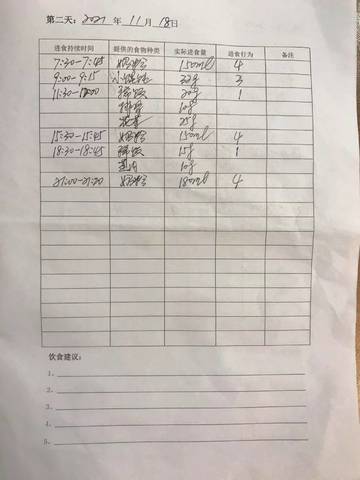 第二天：2021 年 11 月 18日
进食持续时间 提供的食物种类 实际进食量 进食行为 备注
7:30-7:45 奶粉 150ml 4
9:00-9:15 小 3
11:30- 稀饭 20g 1
排骨 10g
25g
15:30-15:45 奶粉 150ml 4
18:30-18:45 稀饭 15g 1
10g
21:00-21:20 奶粉 180ml 4
饮食建议：
1、
2、
3、
4、
5、